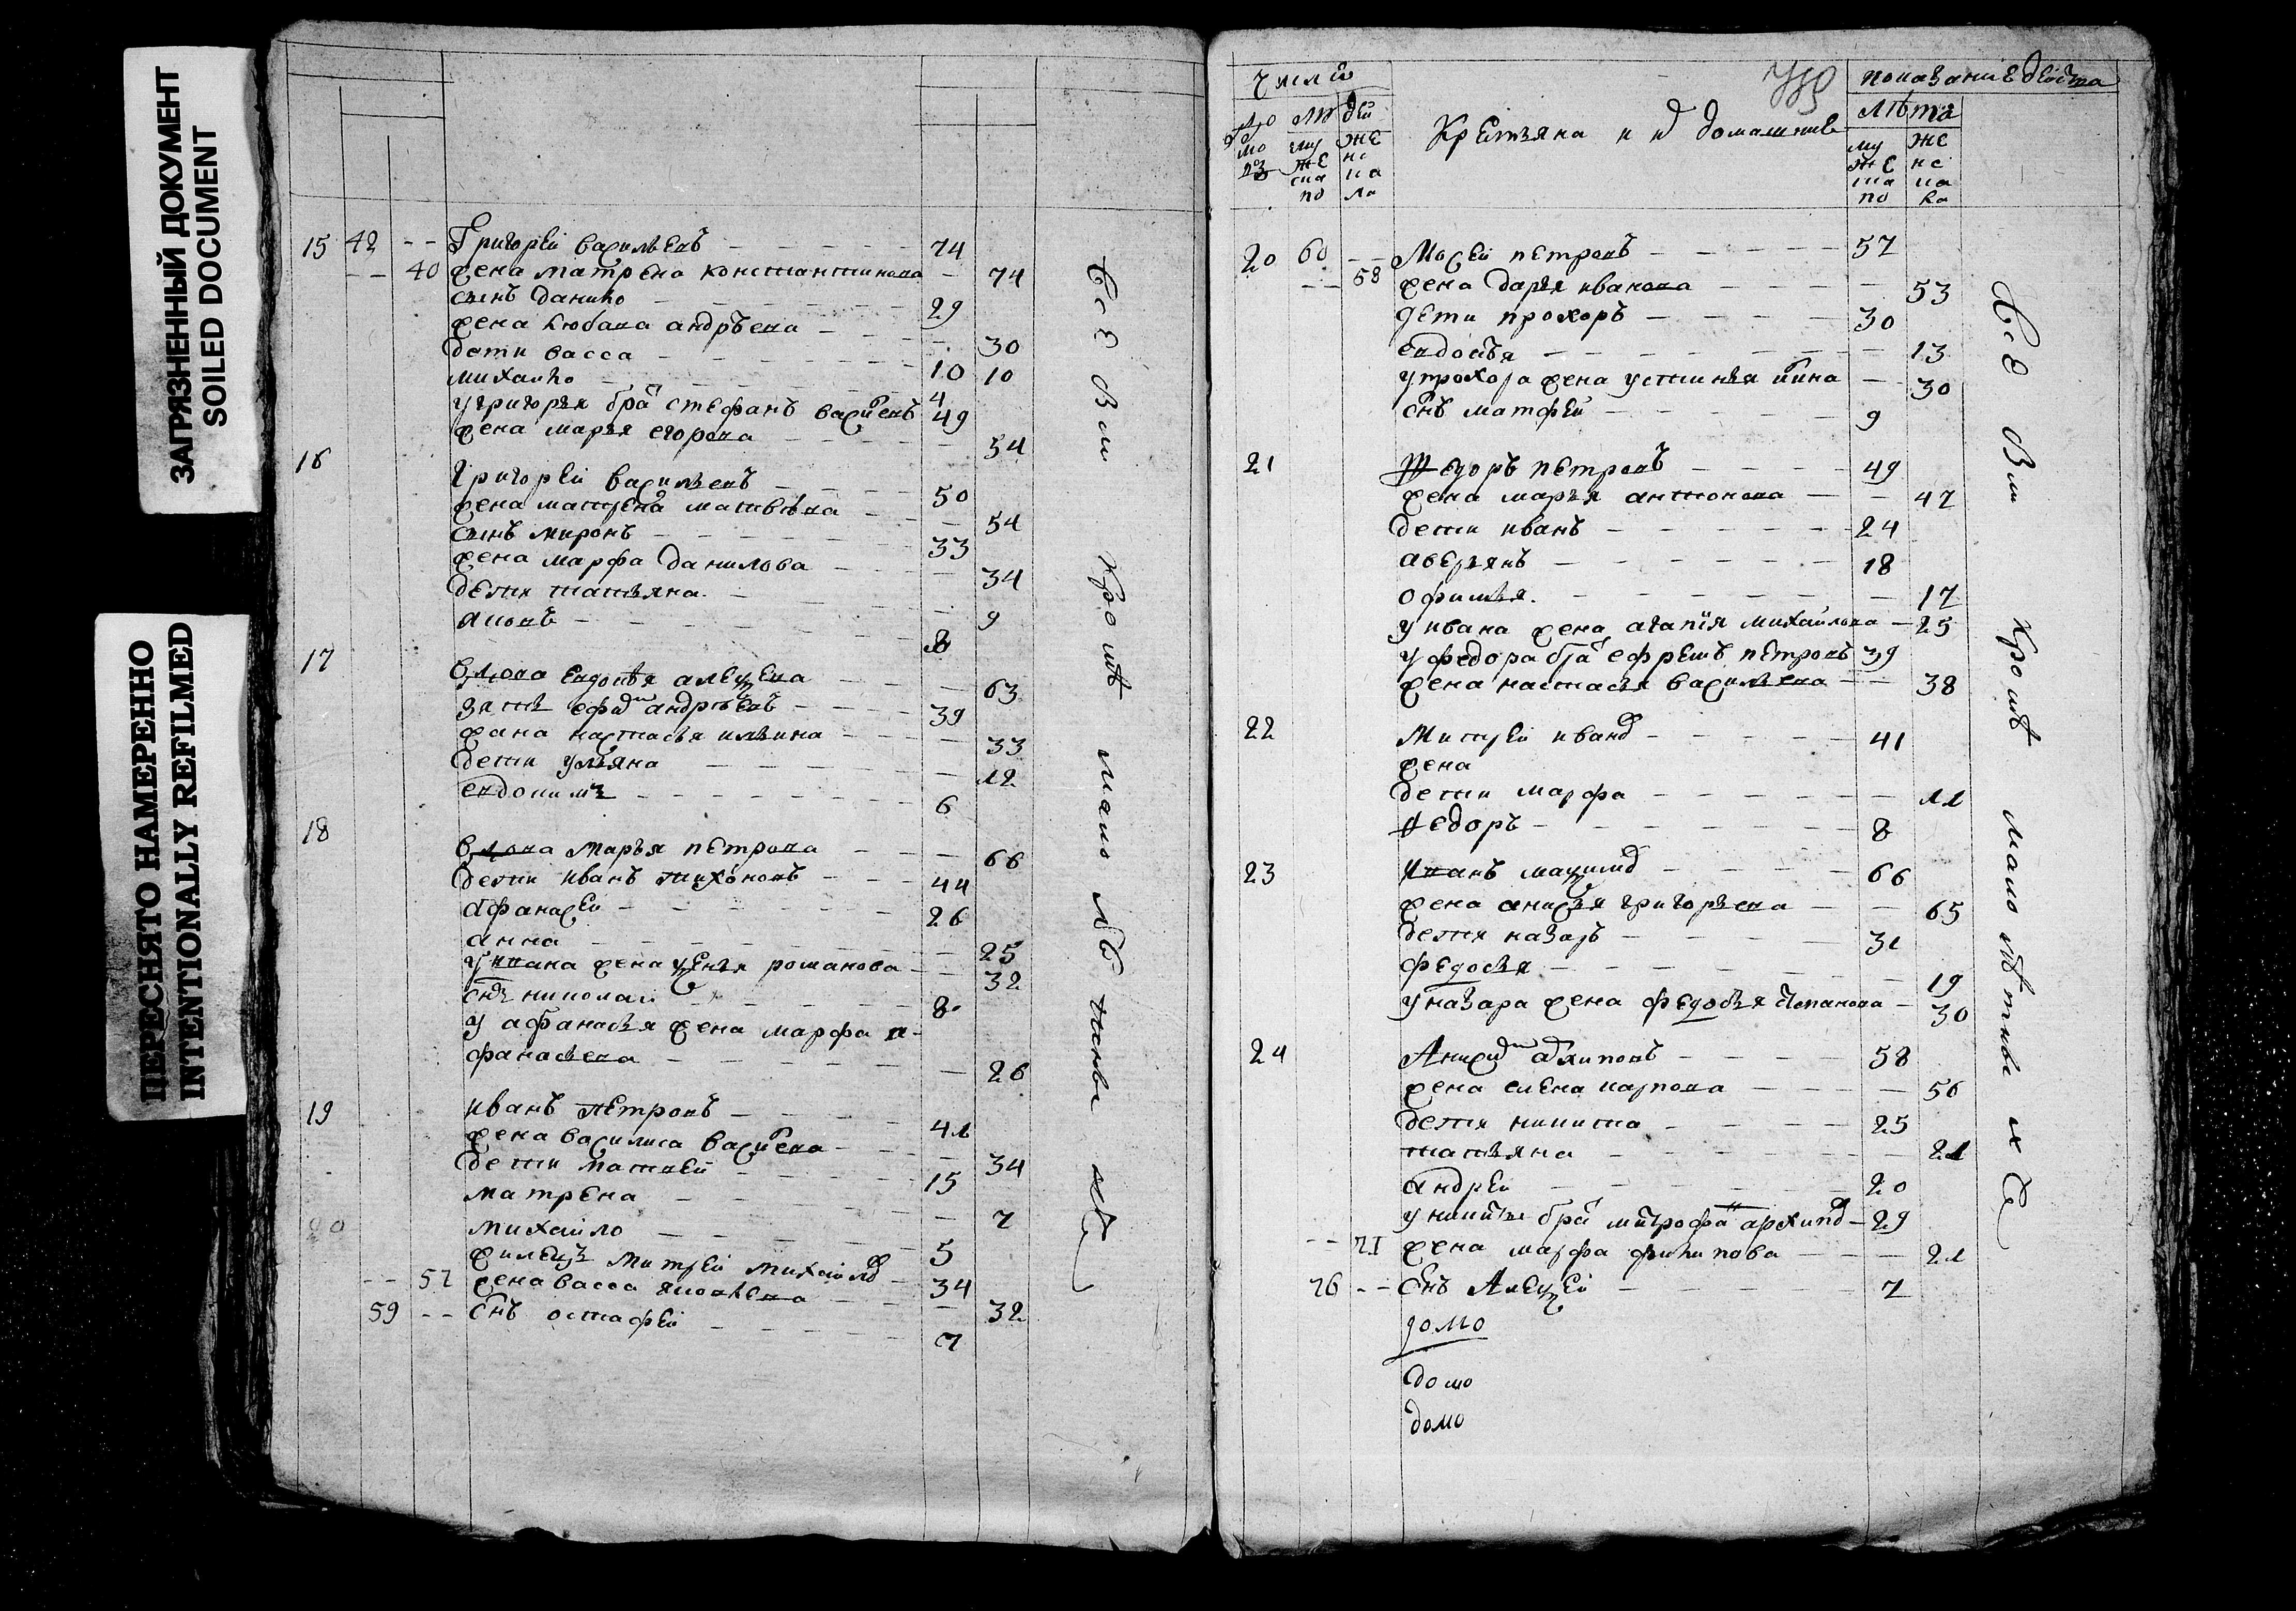 ЗАГРЯЗНЕННЫЙ ДОКУМЕНТ
SOILED DOCUMENT
ПЕРЕСНЯТО НАМЕРЕННО
INTENTIONALLY REFILMED
15 42 -- Григорей васильевъ 74
-- 40 жена матрена константинова 74
сынъ данило 29
жена любава андрѣева 30
дети васса 10
михаило 10 4
у григорья бра стефанъ василевъ 49
жена марья егорова 54
16 Григорей васильевъ 50
жена матрена матвѣева 54
сынъ миронъ 33
жена марфа данилова 34
дети татьяна 9
яковъ 8
17 вдова евдокѣя алеѯеева 63
зять андрѣевъ 39
жана настасья ильина 33
дети ульяна 12
евдокимъ 6
18 вдова марья петрова 66
дети иванъ тихоновъ 44
афанасей 26
анна 25
у ивана жена ѯенья романова 32
снъ николаи 8
у афанасья жена марфа а-
фанасьева 26
19 иванъ петровъ 41
жена василиса василева 34
дети матвей 15
матрена 7
михайло 5
20 жилецъ митрей михайлов 34
-- 57 жена васса яковлева 32
59 -- снъ остафей 7
всѣ вы кромѣ малолѣтных
число
людей
муже ска по
же нс ка ла
Крестьяна и домашние
показание
лѣта
муже ска по
же нс ка
20 60 -- Мосей петровъ 57
-- 58 жена дарья иванова 53
дети прохоръ 30
евдокѣя 13
у прохора жена устинья 30
снъ матфей 9
21 Федоръ петровъ 49
жена марья антонова 47
дети иванъ 24
аверьянъ 18
офимья 17
у ивана жена агапия михайлова 25
у федора бра ефремъ петровъ 39
жена настасья васильева 38
22 Митрей иванов 41
жена
дети марфа 11
федоръ 8
23 Иванъ 66
жена анисья григорьева 65
дети назаръ 31
федосья 19
у назара жена федосья степанова 30
24 архиповъ 58
жена елена карпова 56
дети никита 25
татьяна 21
андрей 20
у никиты бра митрофа архипов 29
-- 71 жена марфа филипова 21
76 -- снъ Алеѯей 7
домо
домо
домо
всѣ вы кромѣ малолѣтных